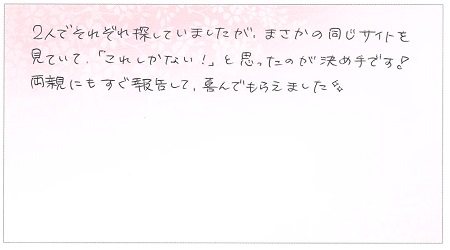 2人でそれぞれ探していましたが、まさかの同じサイトを
見ていて、「これしかない！」と思ったのが決め手です!
両親にもすぐ報告して、喜んでもらえました